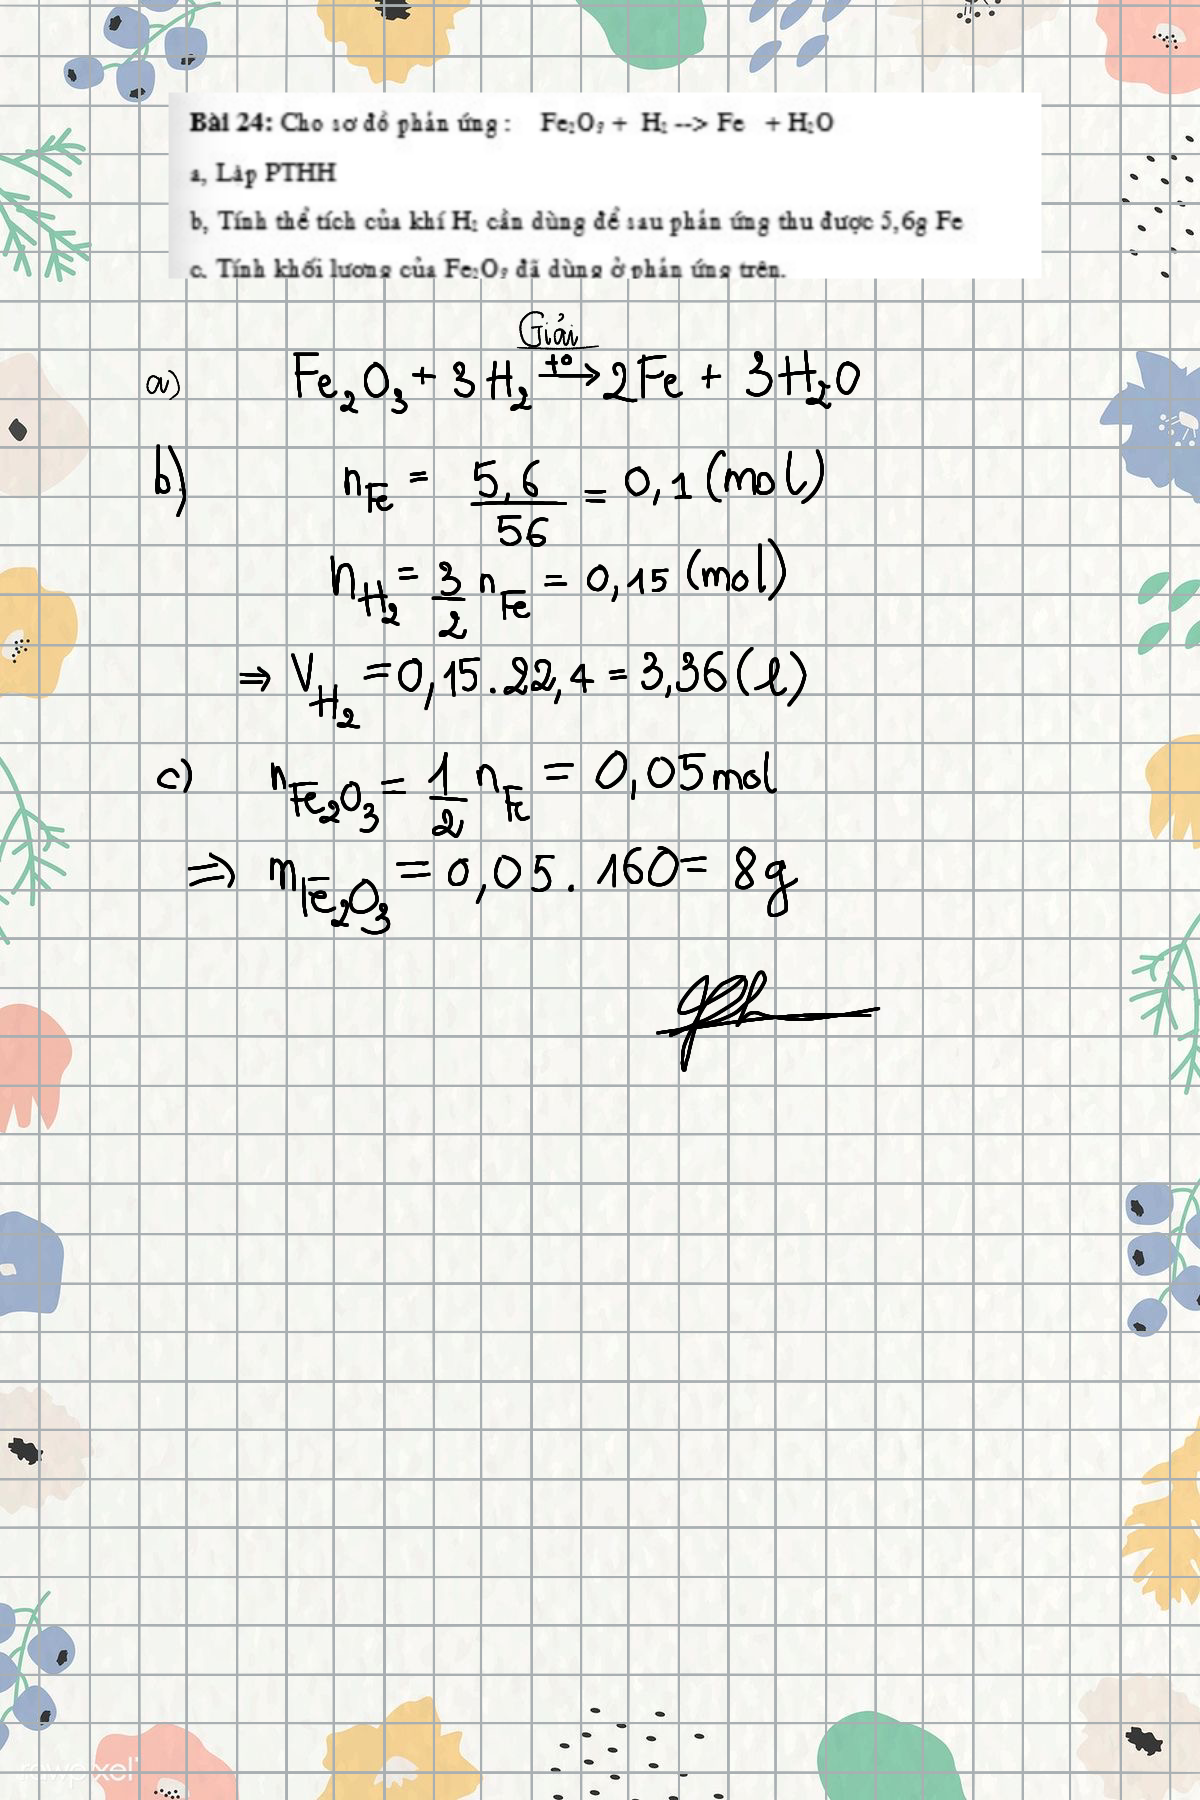 Bài 24: Cho sơ đồ phản ứng : Fe₂O₃ + H₂ --> Fe + H₂O
a, Lập PTHH
b, Tính thể tích của khí H₂ cần dùng để sau phản ứng thu được 5,6g Fe
c. Tính khối lượng của Fe₂O₃ đã dùng ở phản ứng trên.
Giải
a) Fe₂O₃ + 3H₂ –tº→ 2Fe + 3H₂O
b) n_Fe = 5,6/56 = 0,1 (mol)
n_H₂ = 3/2 n_Fe = 0,15 (mol)
⇒ V_H₂ = 0,15.22,4 = 3,36 (l)
c) n_Fe₂O₃ = 1/2 n_Fe = 0,05 mol
⇒ m_Fe₂O₃ = 0,05 . 160 = 8g
rawpixel